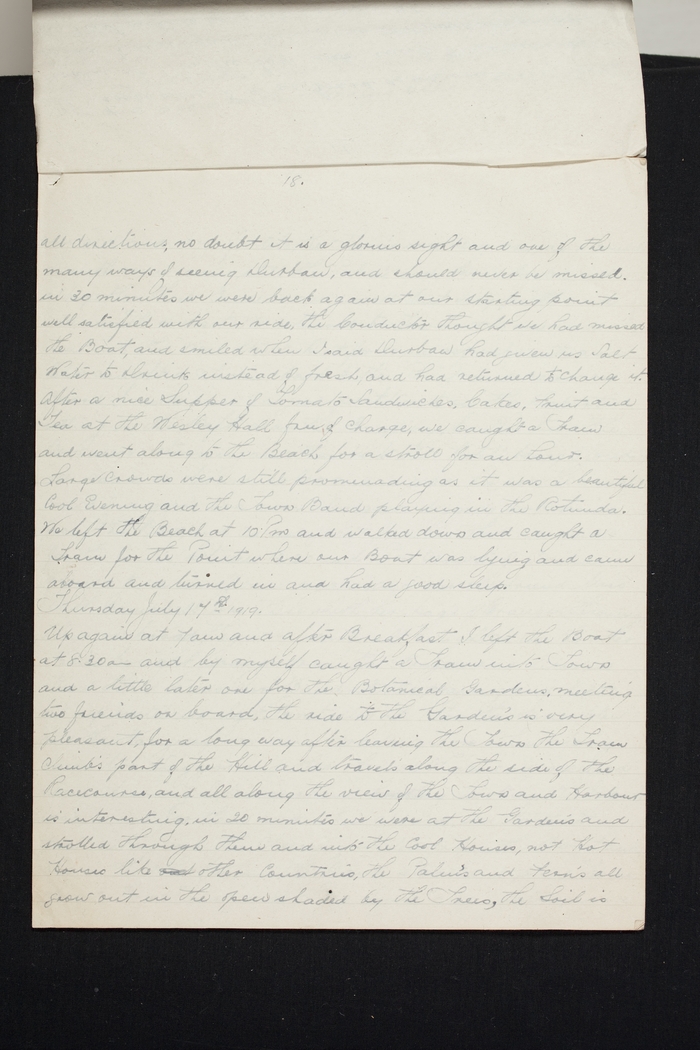 18.
all directions, no doubt it is a glorius sight and one of the
many ways of seeing Durban, and should never be missed.
in 20 minutes we were back again at our starting point
well satisfied with our ride, the Conductor thought we had missed
the Boat, and smiled when I said Durban had given us Salt
Water to Drink instead of fresh, and had returned to change it.
After a nice Supper of Tomato Sandwiches, Cakes, Fruit and
Tea at the Wesley Hall free of charge, we caught a Tram
and went along to the Beach for a stroll for an hour.
Large Crowds were still promenading as it was a beautiful
Cool Evening and the Town Band playing in the Rotunda.
We left the Beach at 10 Pm and walked down and caught a
Tram for the Point where our Boat was lying and came
aboard and turned in and had a good sleep.
Thursday July 17th 1919.
Up again at 7am and after Breakfast I left the Boat
at 8.30am and by myself caught a Tram into Town
and a little later one for the Botanical Gardens, meeting
two friends on board, the ride to the Gardens is very
pleasant, for a long way after leaving the Town the Tram
Climbs part of the Hill and travels along the side of the
Racecourse, and all along the view of the Town and Harbour
is interesting, in 20 minutes we were at the Gardens and
strolled through them and into the Cool Houses, not Hot
Houses like other Countries, the Palms and Ferns all
grow out in the open shaded by the Trees, the Soil is